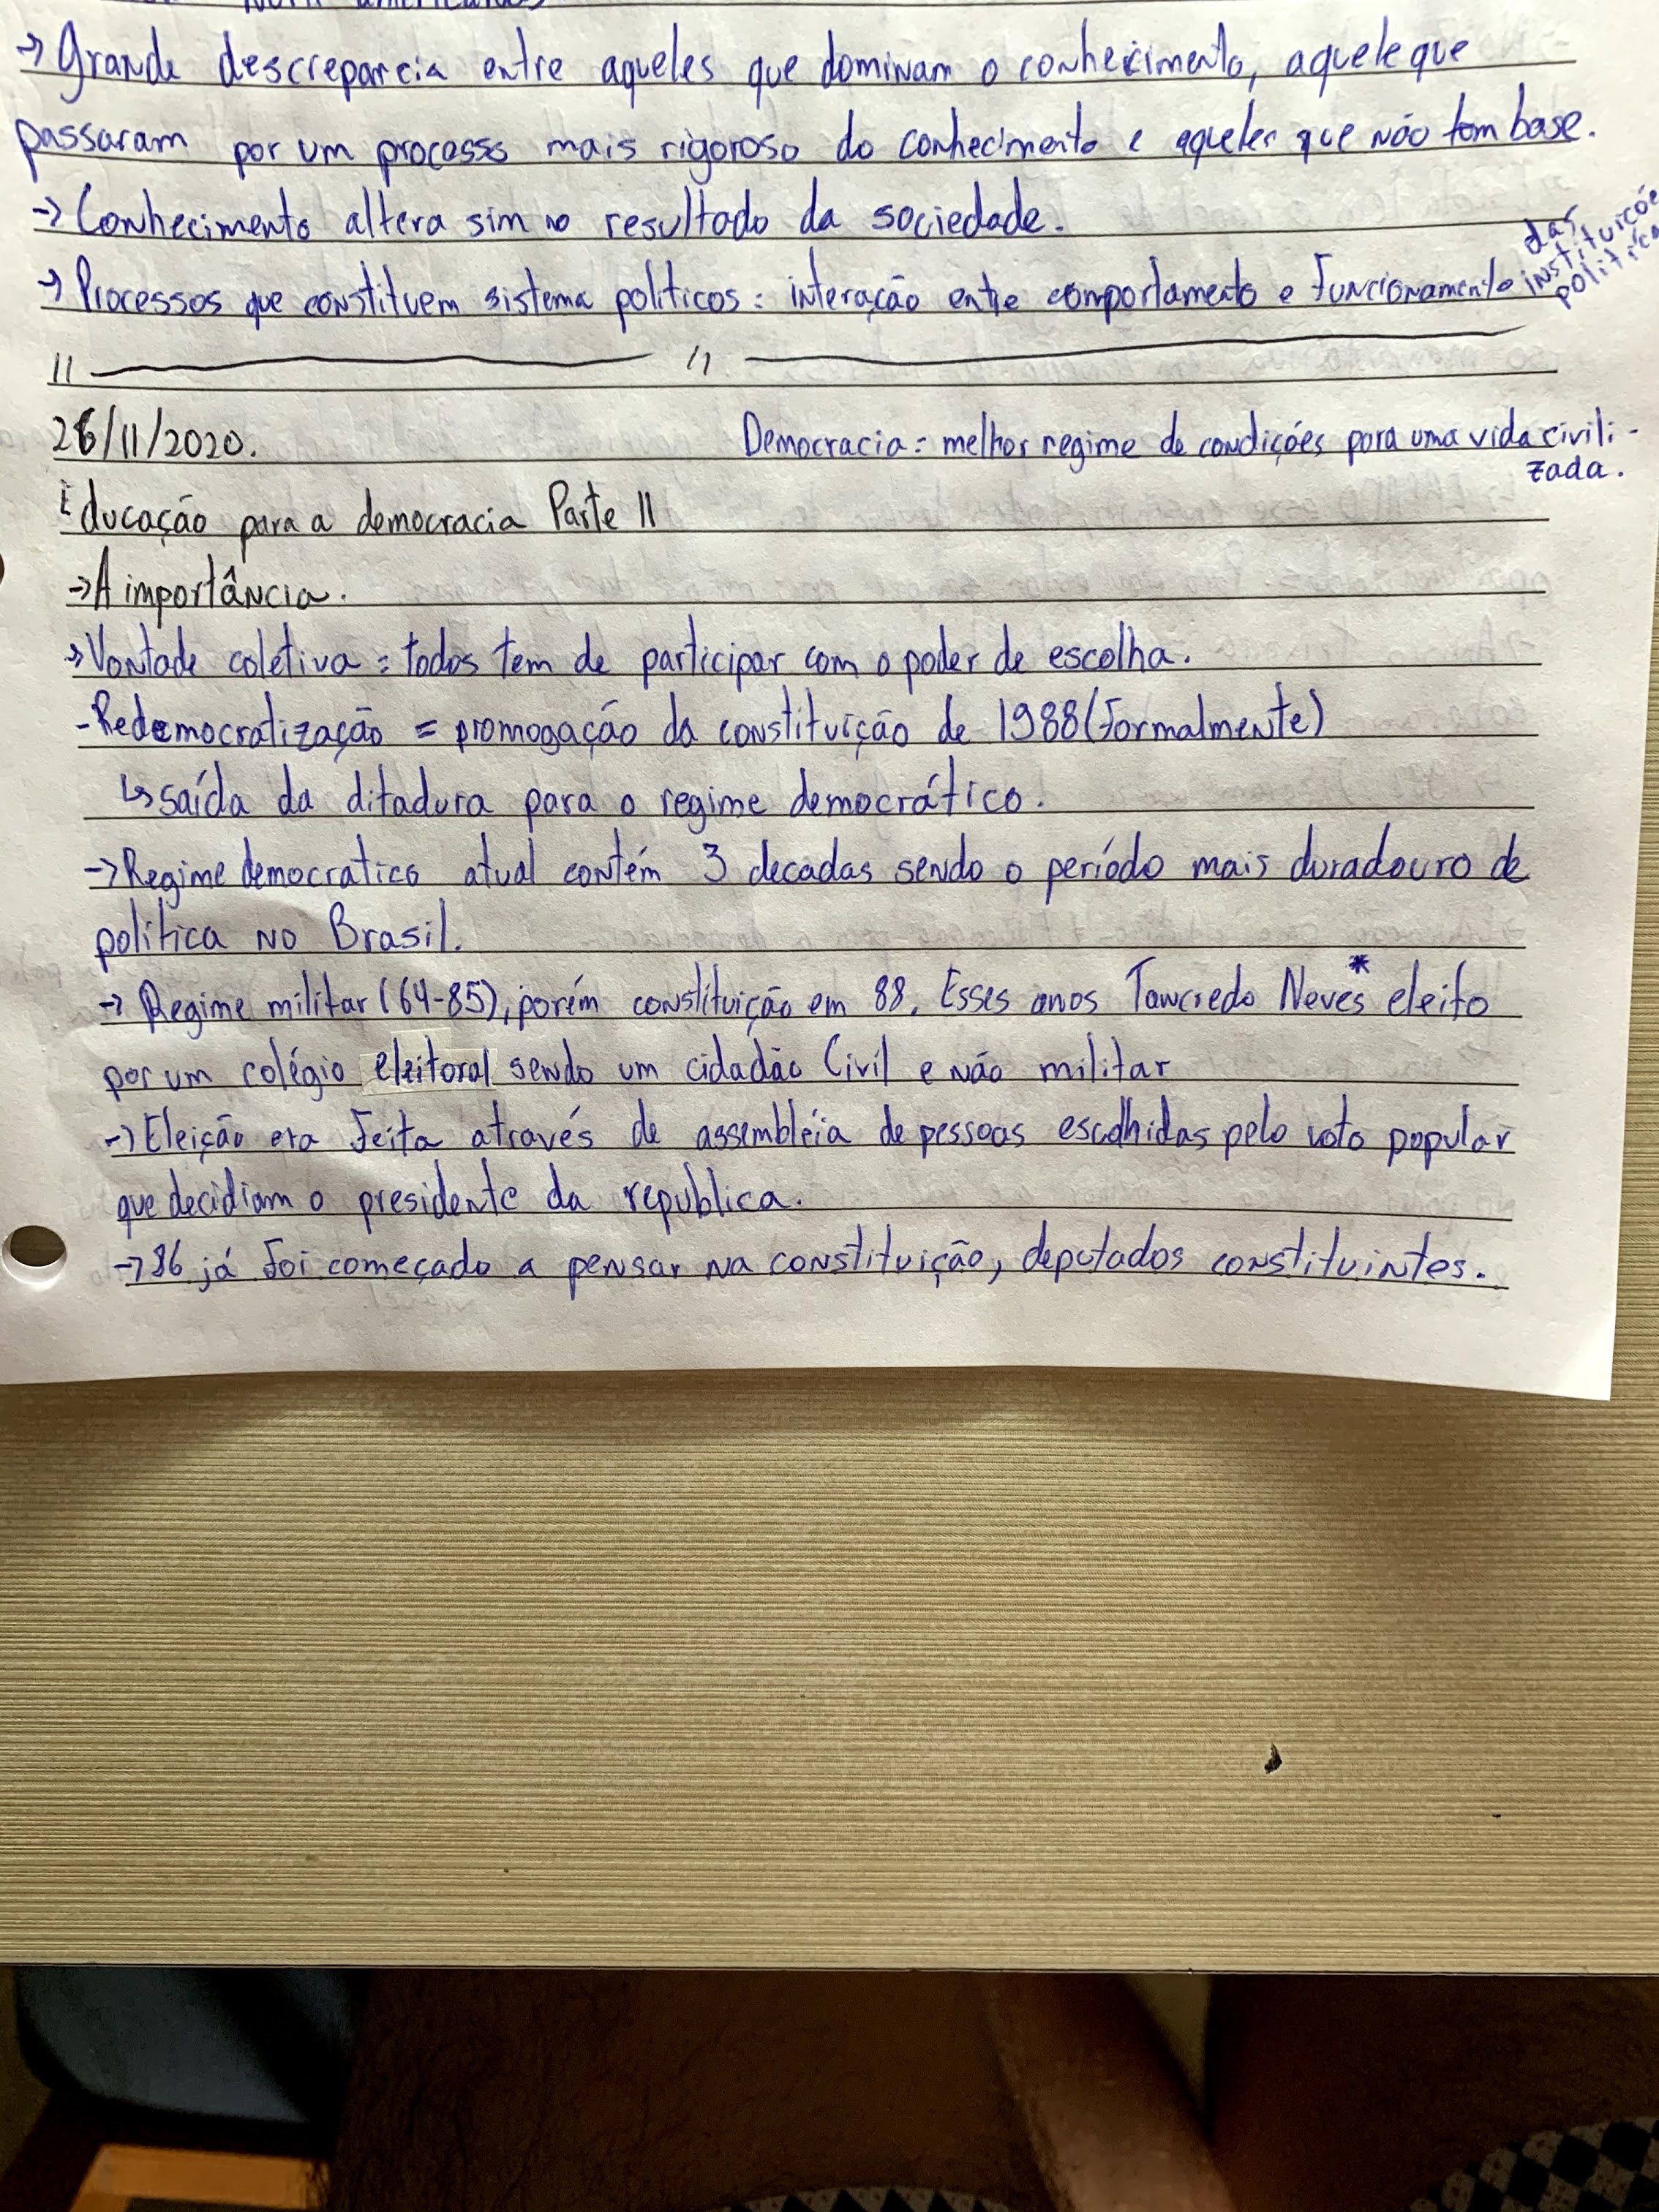 → Grande descreparcia entre aqueles que dominam o conhecimento, aquele que
passaram por um processo mais rigoroso do conhecimento e aqueles que não tem base.
→ Conhecimento altera sim no resultado da sociedade.
→ Processos que constituem sistema políticos: interação entre comportamento e funcionamento das instituições
26/11/2020.
Democracia = melhor regime de condições para uma vida civili-
zada.
Educação para a democracia Parte II
→ A importância.
→ Vontade coletiva = todos tem de participar com o poder de escolha.
- Redemocratização = promogação da constituição de 1988 (formalmente)
↳ saída da ditadura para o regime democrático.
→ Regime democratico atual contém 3 decadas sendo o período mais duradouro de
política no Brasil.
→ Regime militar (64-85), porém constituição em 88. Esses anos Tancredo Neves* eleito
por um colégio eleitoral sendo um cidadão Civil e não militar
→ Eleição era feita através de assembléia de pessoas escolhidas pelo voto popular
que decidiam o presidente da republica.
→ 86 já foi começado a pensar na constituição, deputados constituintes.